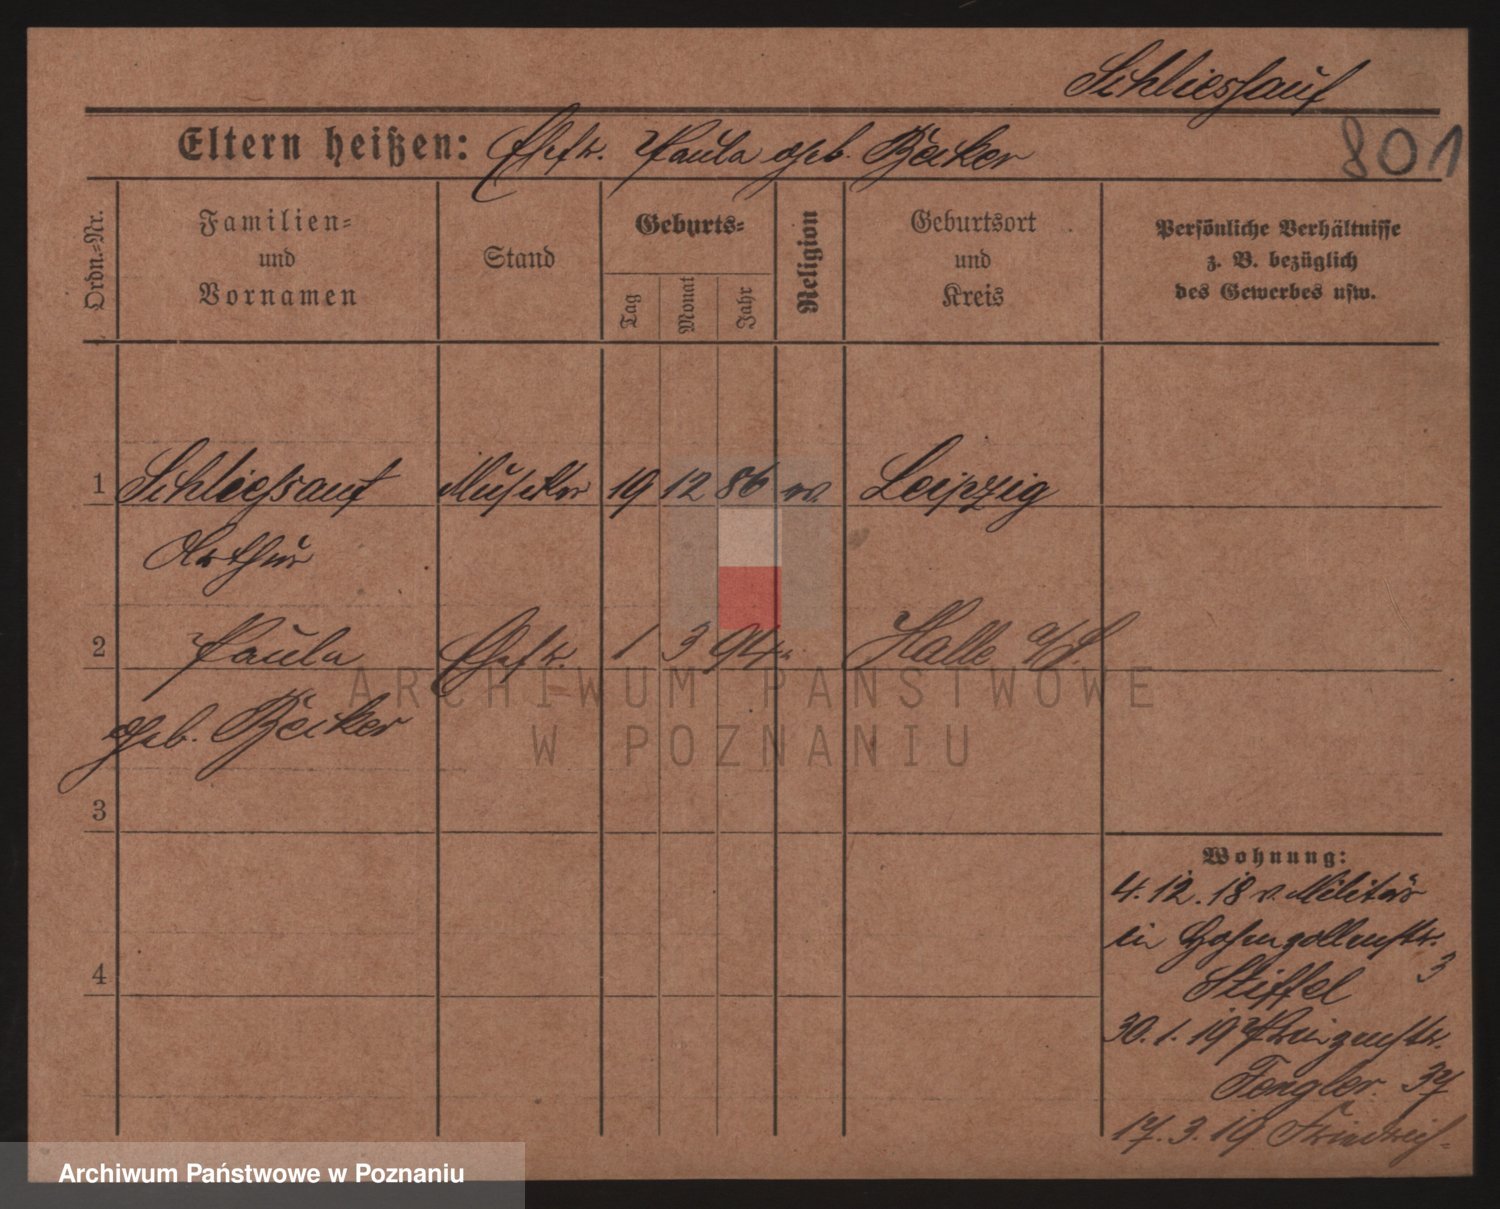 Schliessauf
Eltern heißen: Ehefr. Paula geb. Becker
801
Ordn.=Nr.
Familien=
und
Vornamen
Stand
Geburts=
Tag
Monat
Jahr
Religion
Geburtsort
und
Kreis
Persönliche Verhältnisse
z. B. bezüglich
des Gewerbes usw.
1 Schliessauf Musiker 19 12 86 ev. Leipzig
Arthur
2 Paula Ehefr. 1 3 94 " Halle a/S.
geb. Becker
3
4
Wohnung:
4.12.18 v. Militär
in Hohenzollernstr.
3
Stiffel
30.1.19 Prinzenstr.
Fengler 37
17.3.19 Friedrich-
ARCHIWUM PAŃSTWOWE
W POZNANIU
Archiwum Państwowe w Poznaniu